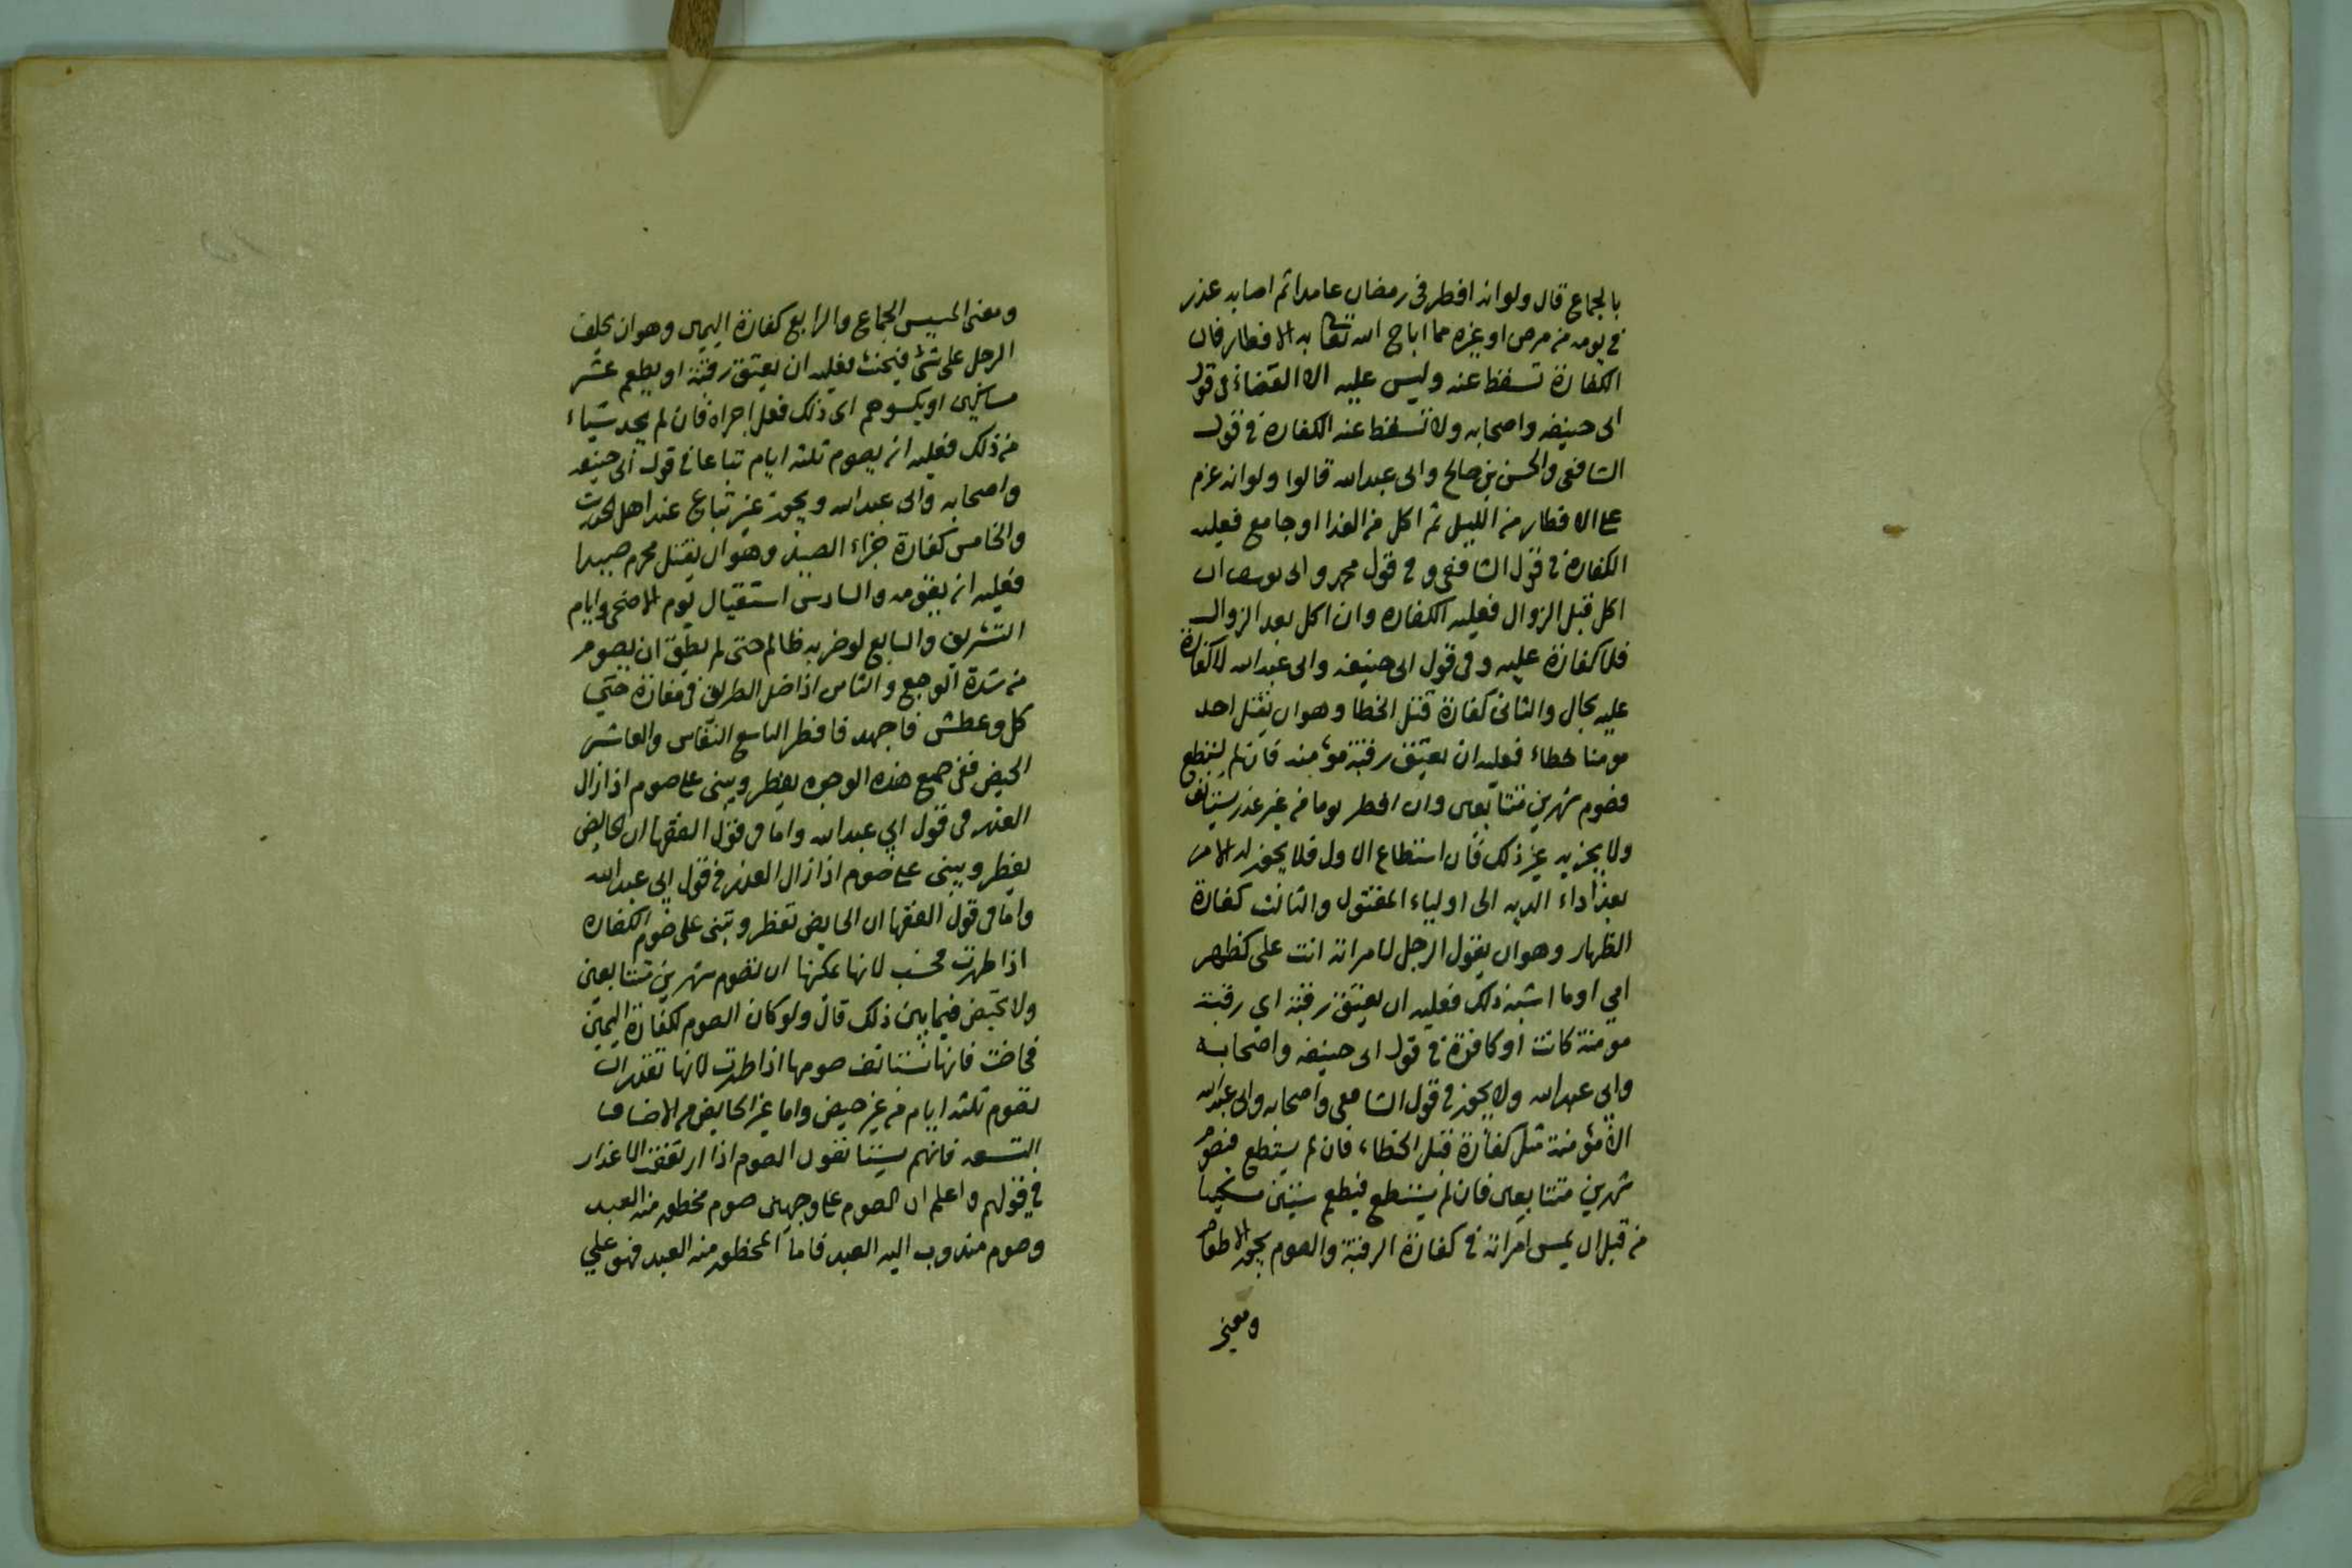 بالجماع قال ولو انه افطر فى رمضان عامدا ثم اصابه عذر
فى يومه من مرض او غيره مما اباح الله تعالى به الافطار فان
الكفارة تسقط عنه وليس عليه الا القضاء فى قول
ابى حنيفه واصحابه ولا تسقط عنه الكفارة فى قول
الشافعى والحسن بن صالح وابى عبد الله قالوا ولو انه عزم
على الافطار من الليل ثم اكل من الغدا او جامع فعليه
الكفارة فى قول الشافعى و فى قول محمد وابى يوسف ان
اكل قبل الزوال فعليه الكفاره وان اكل بعد الزوال
فلا كفارة عليه وفى قول ابى حنيفه وابى عبد الله لا كفارة
عليه بحال والثانى كفارة قتل الخطا وهو ان يقتل احد
مومنا خطاء فعليه ان يعتق رقبة مؤمنه فان لم يستطع
فصوم شهرين متتابعين وان افطر يوما من غير عذر يستانف
ولا يجزيه غير ذلك فان استطاع الاول فلا يجوز له الا من
بعد اداء الديه الى اولياء المقتول والثالث كفارة
الظهار وهو ان يقول الرجل لامراته انت على كظهر
امى او ما اشبه ذلك فعليه ان يعتق رقبة اي رقبة
مومنة كانت او كافرة فى قول ابى حنيفه واصحابه
وابى عبد الله ولا يجوز فى قول الشافعى واصحابه وابى عبد الله
الا مؤمنة مثل كفارة قتل الخطاء فان لم يستطع فصوم
شهرين متتابعين فان لم يستطع فيطعم ستين مسكينا
من قبل ان يمس امراته فى كفارة الرقبة والصوم يجوز الاطعام
ومعنى
ومعنى المسيس الجماع والرابع كفارة اليمين وهو ان يحلف
الرجل على شئ فيحنث فعليه ان يعتق رقبة او يطعم عشر
مساكين او يكسوهم اى ذلك فعل اجزاه فان لم يجد شياء
من ذلك فعليه ان يصوم ثلثه ايام تباعا فى قول ابى حنيفه
واصحابه وابى عبد الله ويجوز غير تباع عند اهل الحديث
والخامس كفارة جزاء الصيد وهو ان يقتل محرم صيدا
فعليه ان يقومه والسادس استقبال يوم الاضحى وايام
التشريق والسابع لو ضربه ظالم حتى لم يطق ان يصوم
من شدة الوجع والثامن اذا ضل الطريق فى مفازة حتى
كل وعطش فاجهد فافطر التاسع النفاس والعاشر
الحيض ففى جميع هذه الوجوه يفطر ويبنى على صوم اذا زال
العذر فى قول ابى عبد الله واما فى قول الفقها ان الحايض
يفطر ويبنى على صوم اذا زال العذر فى قول ابى عبد الله
واما فى قول الفقها ان الحايض تفطر وتبنى على صوم الكفاره
اذا طهرت فحسب لانها يمكنها ان تصوم شهرين متتابعين
ولا تحيض فيما بين ذلك قال ولو كان الصوم لكفارة اليمين
فحاضت فانها تستانف صومها اذا طهرت لانها تقدر ان
تصوم ثلثه ايام من غير حيض واما غير الحايض من الاصناف
التسعه فانهم يستانفون الصوم اذا ارتفعت الاعذار
فى قولهم واعلم ان الصوم على وجهين صوم محظور منه العبد
وصوم مندوب اليه العبد فاما المحظور منه العبد فهو على